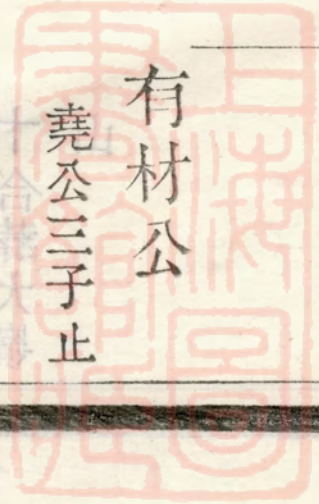 有材公
堯公三子止